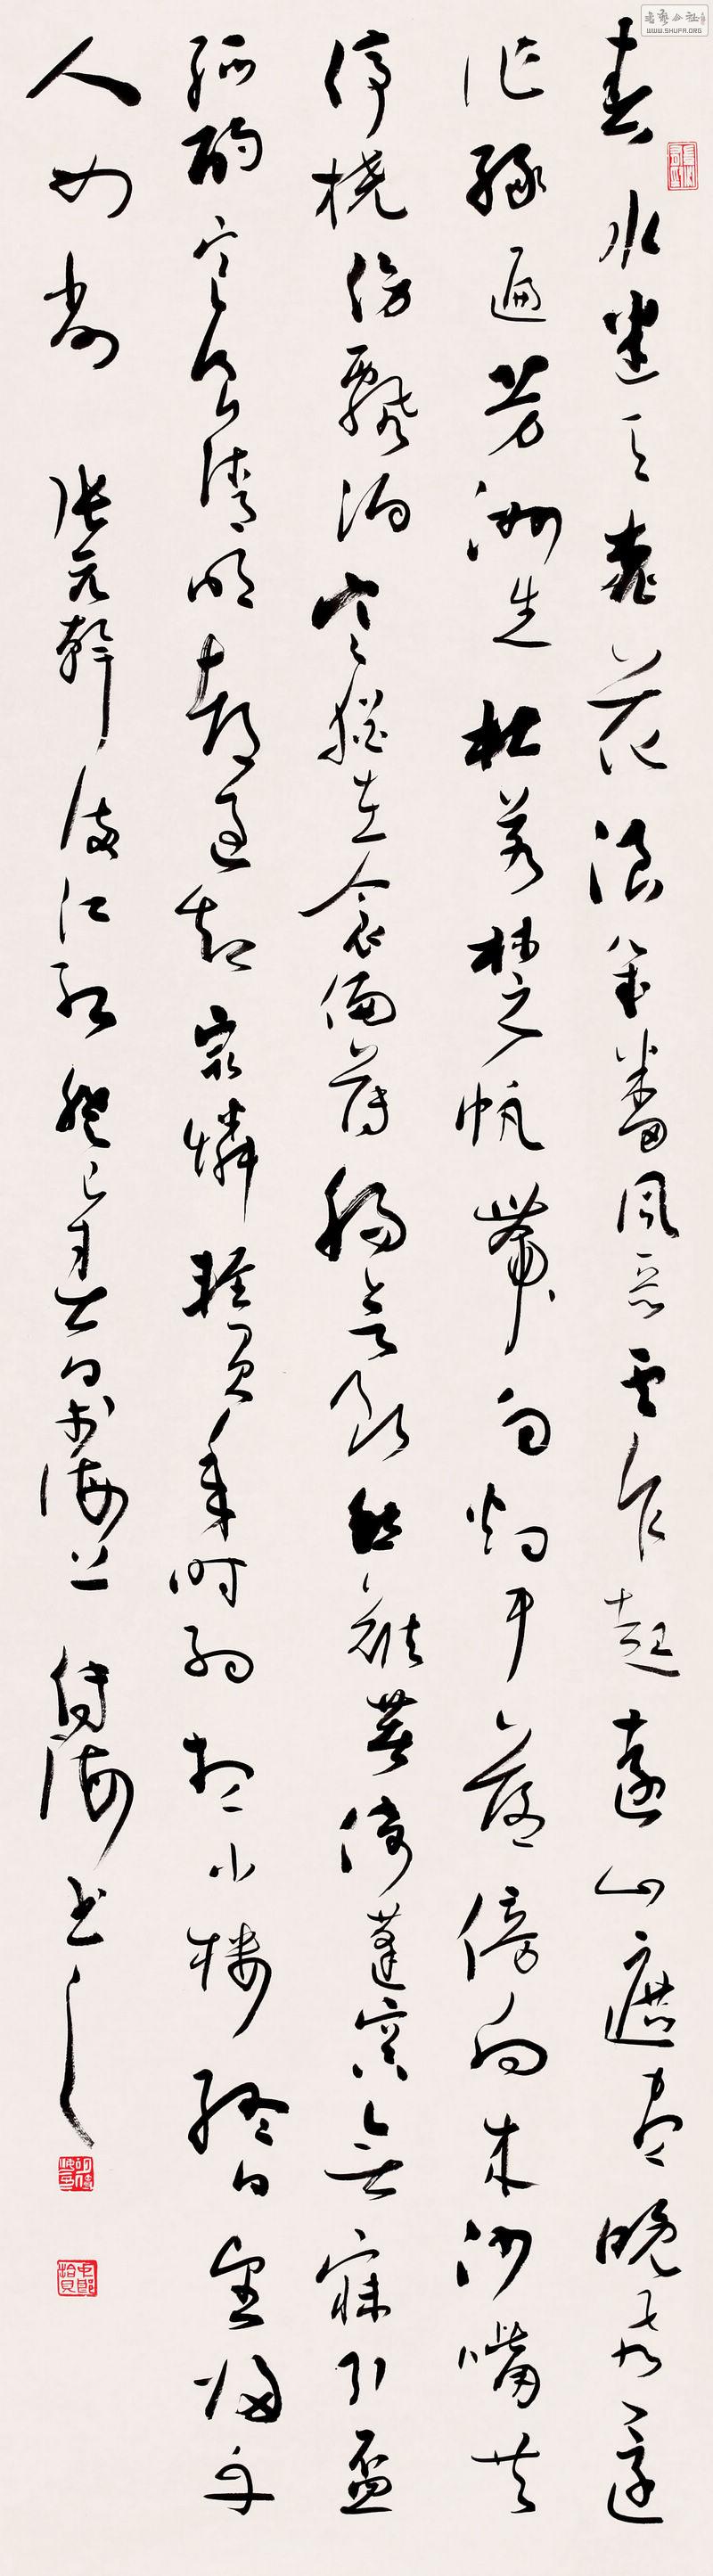 春水迷天桃花浪幾番風惡雲乍起遠山遮盡晚風還
作綠遍芳洲生杜若楚帆帶雨烟中落傍向來沙嘴共
停橈傷飄泊寒猶在衾偏薄腸欲斷愁難著倚蓬窗無寐引盃
孤酌寒食清明都過却最憐輕負年時約想小樓終日望歸舟
人如削 張元幹滿江紅 癸巳 日於海上 傳海書
WWW.SHUFA.ORG